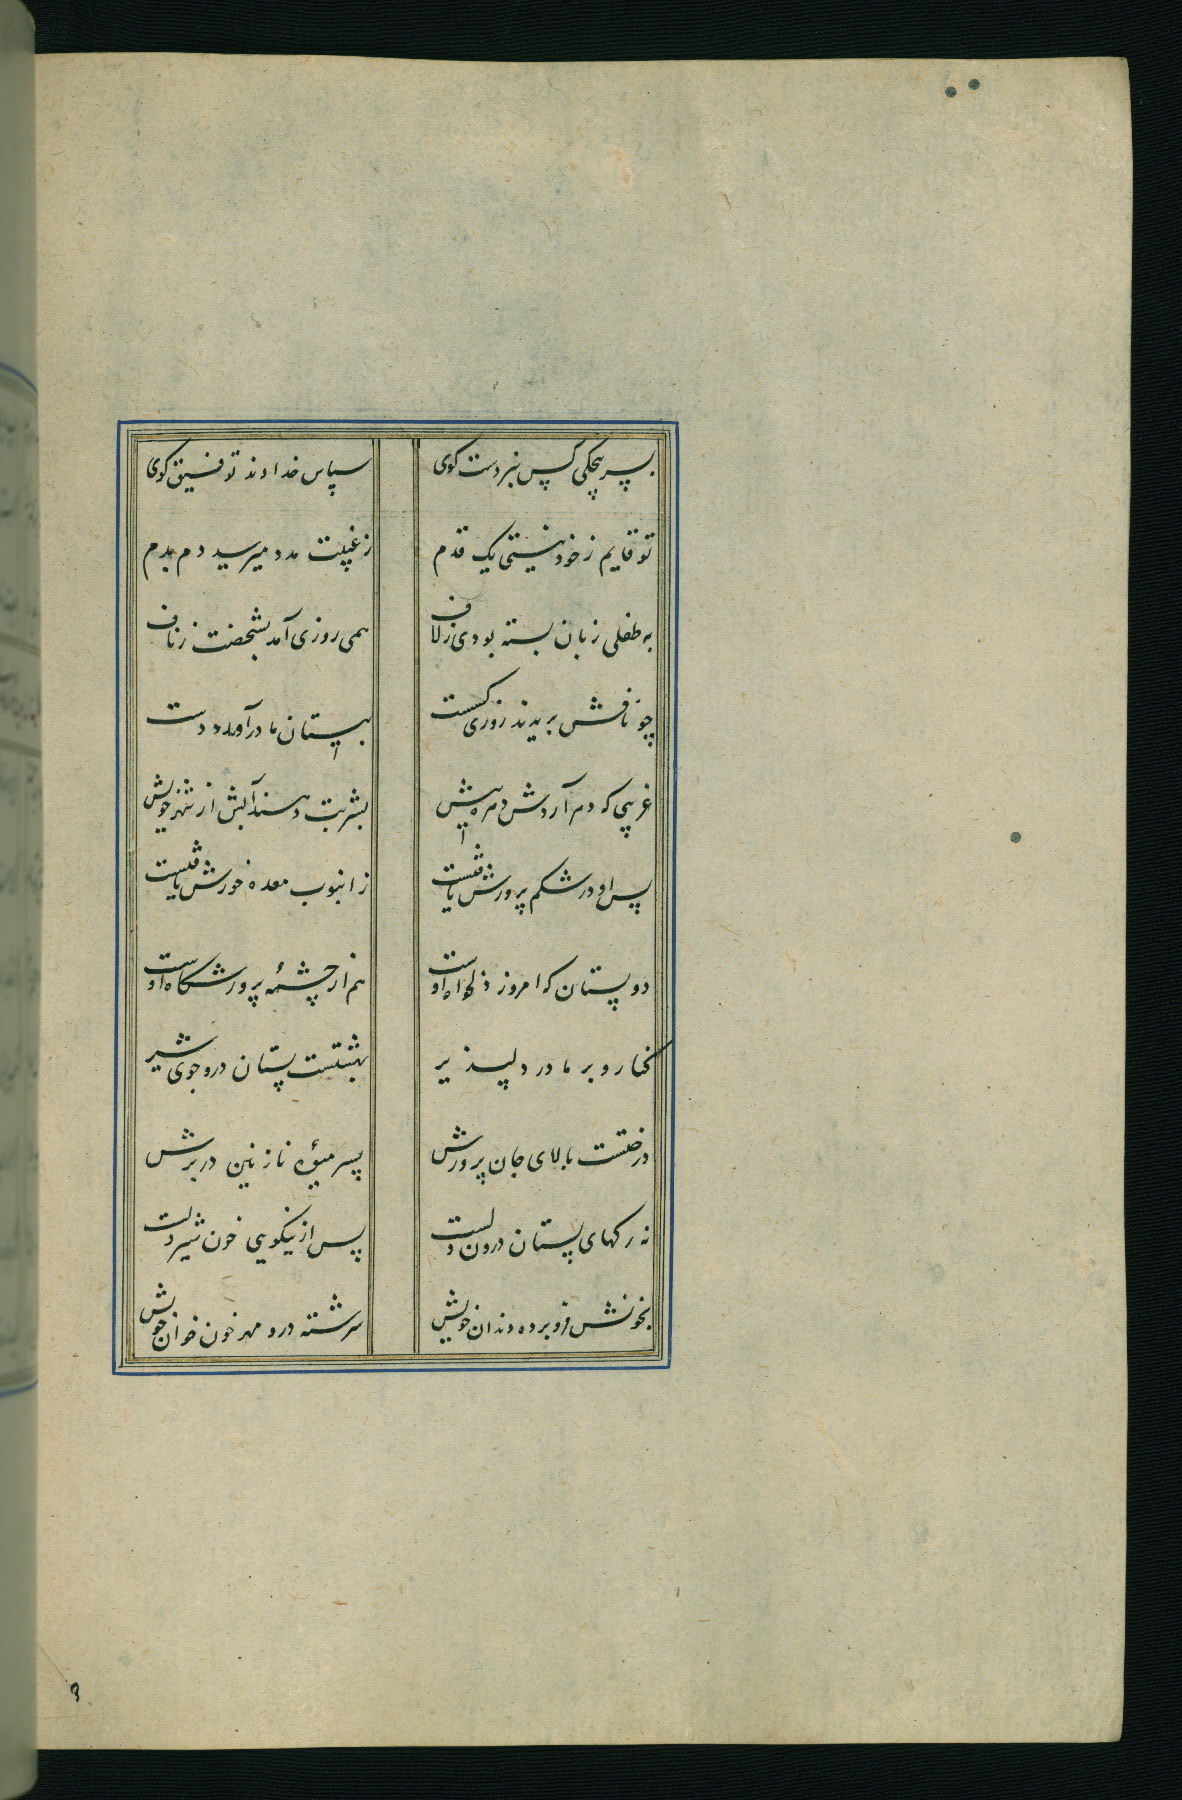 بسرپنجگی کس نبردست گوی
سپاس خداوند توفیق گوی
تو قایم ز خود نیستی یک قدم
ز غیبت مدد میرسد دم بدم
به طفلی زبان بسته بودی ز لاف
همی روزی آمد بشخصت ز ناف
چو نافش بریدند روزی گسست
بپستان مادر آورده دست
غریبی که دهر آردش در پیش
بشربت دهند آبش از شهر خویش
پس او در شکم پرورش یافتست
ز انبوب معده خورش یافتست
دو پستان که امروز دلخواه اوست
هم از چشمهٔ پرورشگاه اوست
کنار و بر مادر دلپذیر
بهشتست پستان درو جوی شیر
درختست بالای جان پرورش
پسر میوهٔ نازنین در برش
نه رگهای پستان درون دلست
پس از نیکویی خون شیر دلست
بخونش فرو برده دندان خویش
سرشته درو مهر خون خوان خویش